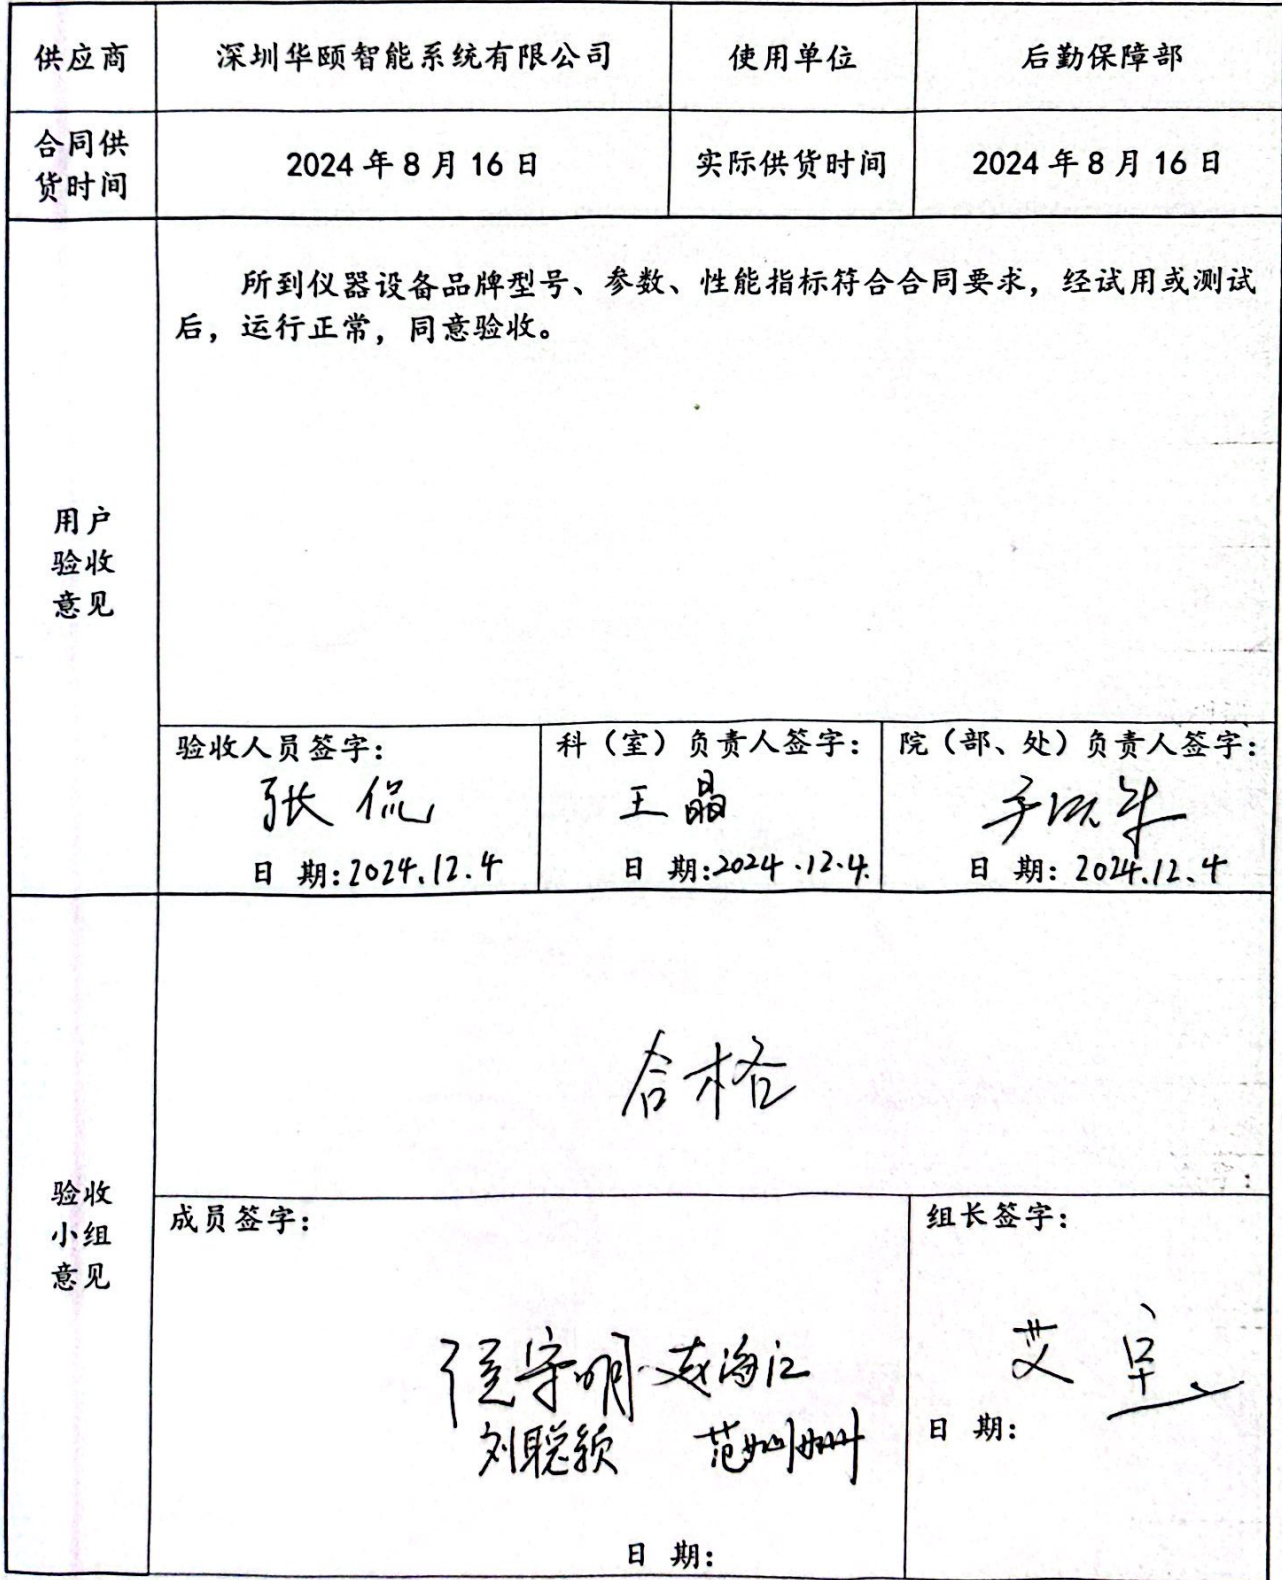 供应商 深圳华颐智能系统有限公司 使用单位 后勤保障部
合同供
货时间
2024 年 8 月 16 日 实际供货时间 2024 年 8 月 16 日
用户
验收
意见
所到仪器设备品牌型号、参数、性能指标符合合同要求，经试用或测试
后，运行正常，同意验收。
验收人员签字：
张侃
日 期: 2024.12.4
科（室）负责人签字：
王晶
日 期: 2024.12.4.
院（部、处）负责人签字：
日 期: 2024.12.4
验收
小组
意见
合格
成员签字：
海江
刘聪颖
日 期:
组长签字：
艾
日 期: